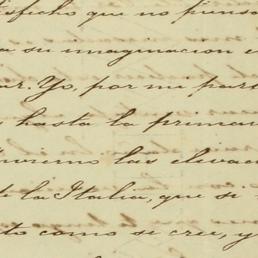 tisfecho que no piensa
a su imaginacion e
ar. Yo, por mi part
hasta la primav
Invierno las eleva
de la Italia, que si
to como se cree, y